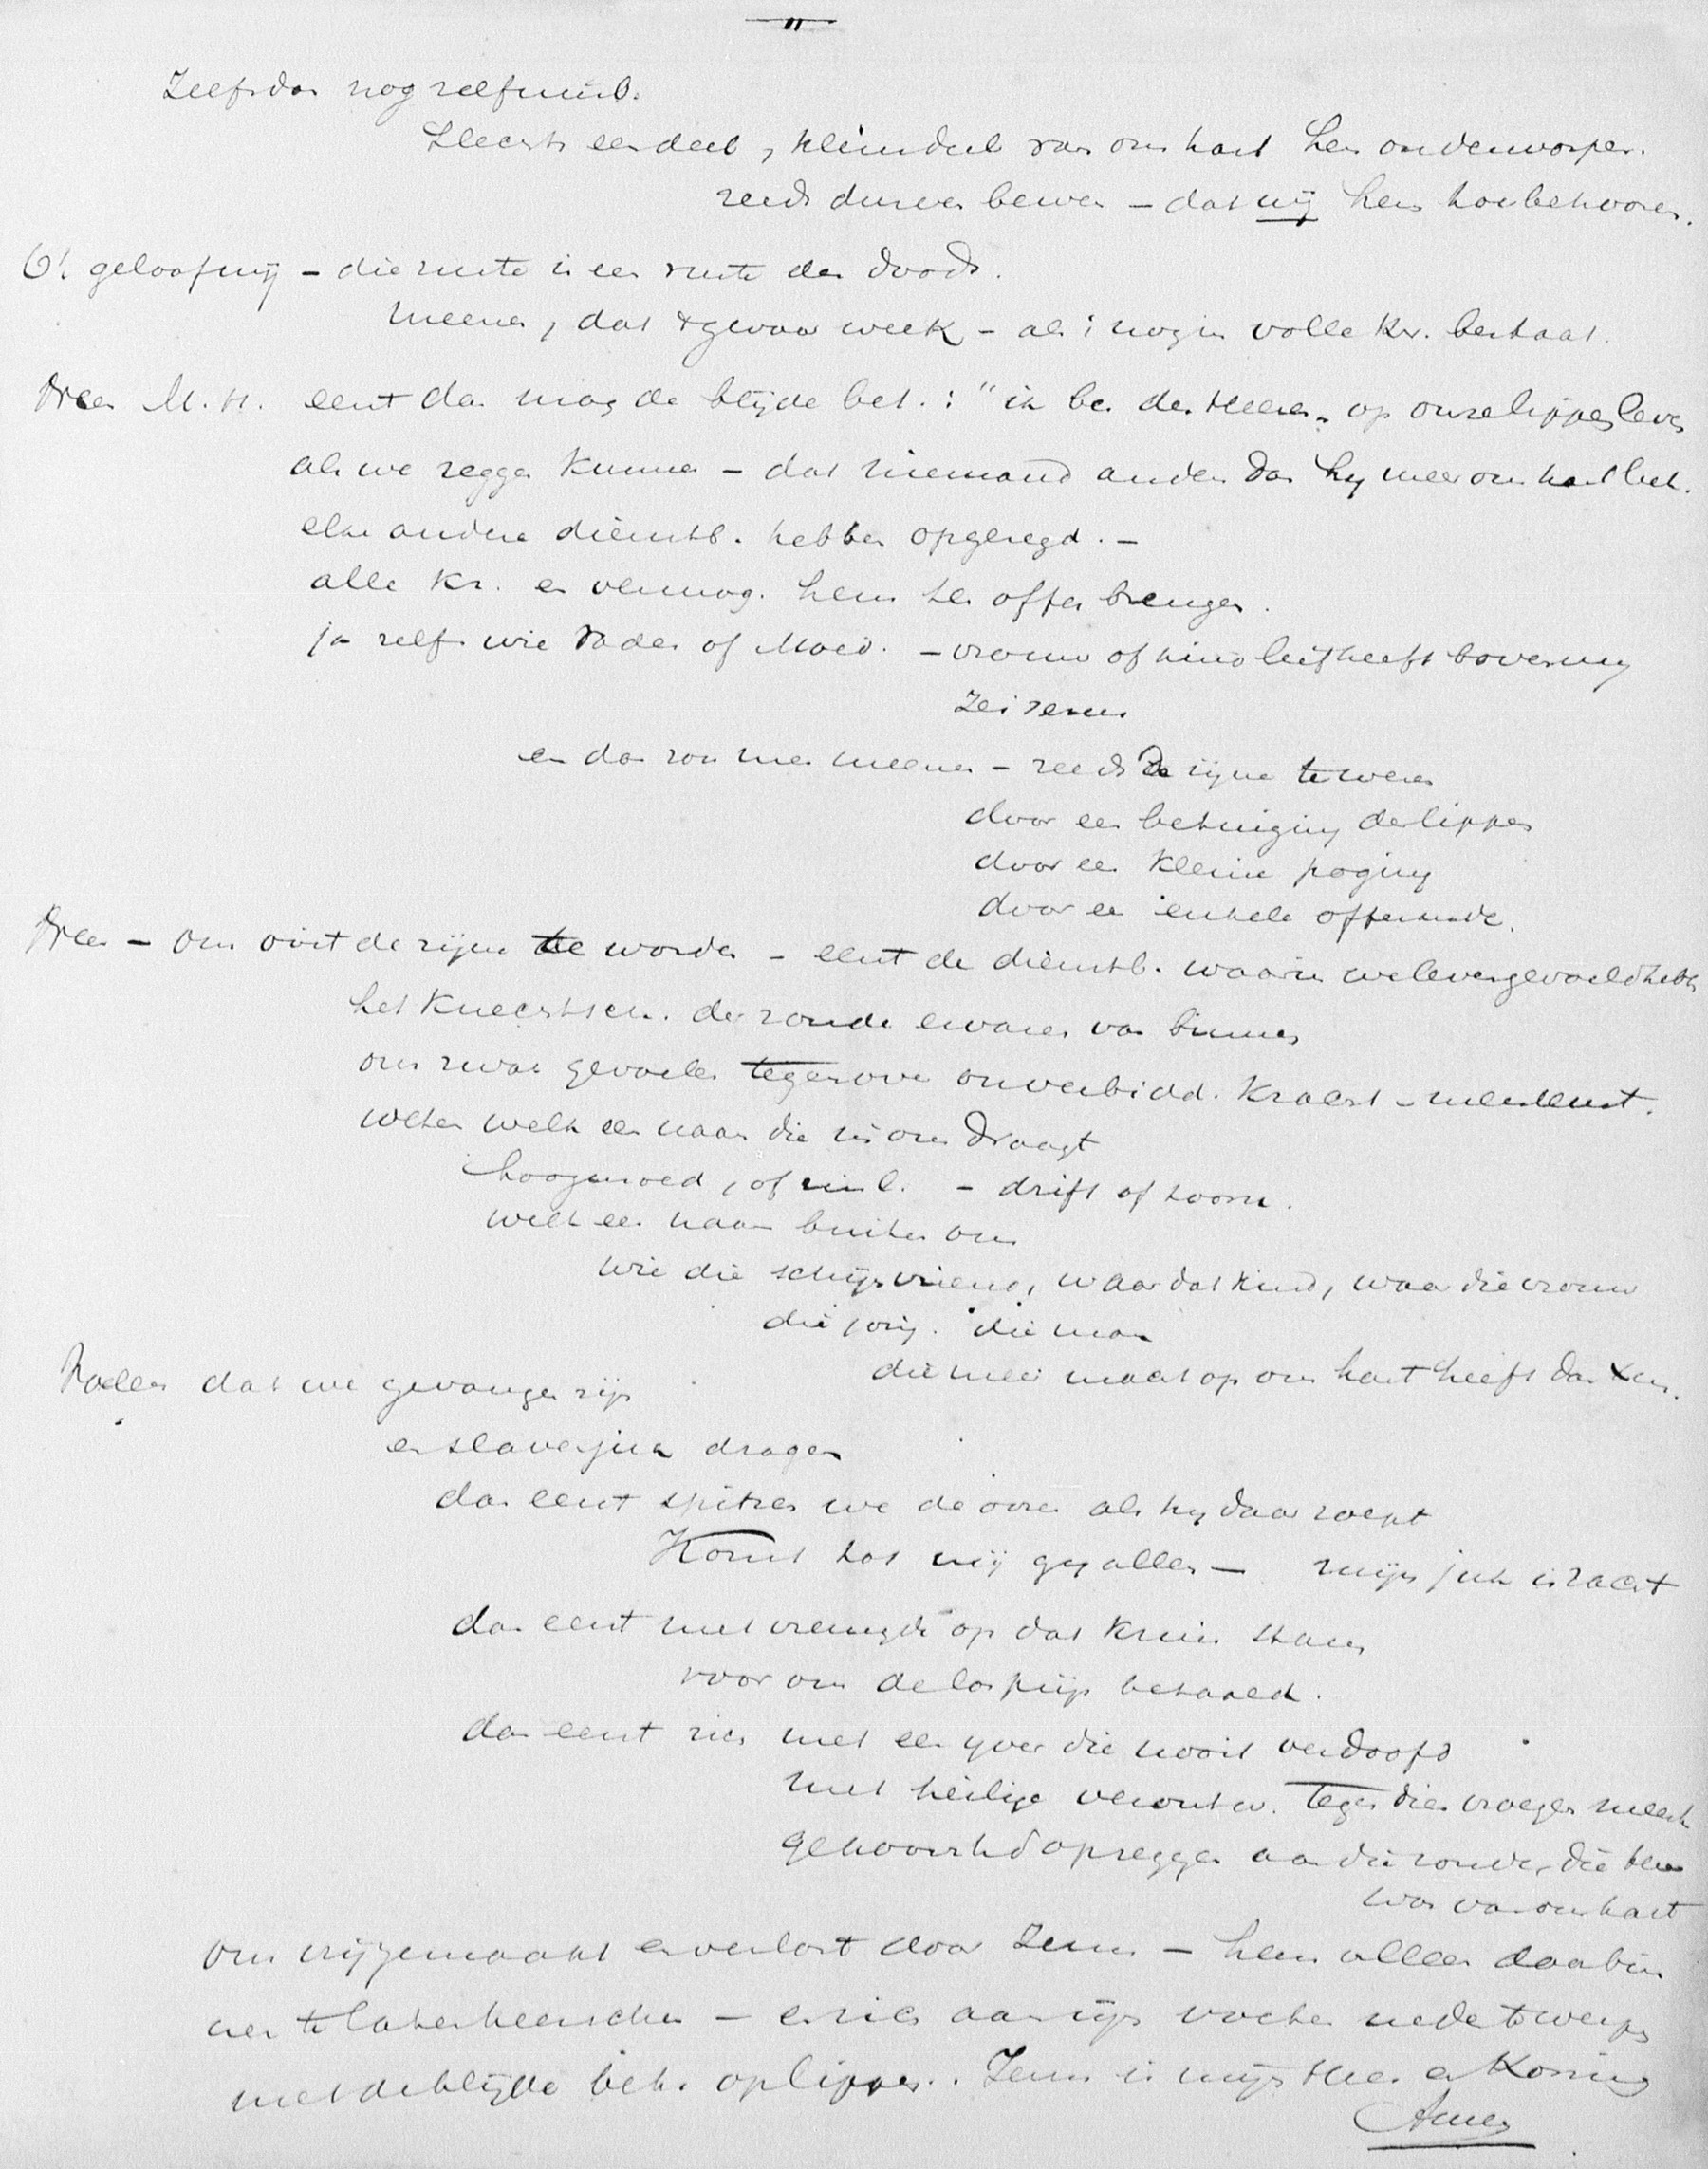 "
Zelfs dan nog zelfzucht.
Slechts een deel, klein deel van ons hart hem onderworpen.
reeds durven beweren - dat wij hem toebehooren.
O! geloof mij - die ruste is een ruste des doods.
meenen, dat 't gevaar week - als 't nog in volle kr. bestaat.
Neen M. H. eerst dan mag de blijde bel.: "ik ben des Heeren" op onze lippen leven
als we zeggen kunnen - dat niemand anders dan hij meer ons hart beh.
elke andere dienstb. hebben opgezegd. -
alle kr. en vermog. hem ten offer brengen.
ja zelfs wie vader of moed. - vrouw of kind lief heeft boven mij
zei Jezus
en dan zou men meenen - reeds de zijne te wezen
door een betuiging der lippen
door een kleine poging
door een enkele offerande.
Neen - om ooit de zijne te worden - eerst de dienstb. waarin we leven gevoeld hebb
het knechtsch. der zonde ervaren van binnen
ons zwak gevoelen tegenover onverbidd. kracht
weten welk een naam die in ons draagt
hoogmoed, of - drift of toorn.
welk een naam buiten ons
wie die schijnvriend, waar dat kind, waar die vrouw
die jong. die man
die meer macht op ons hart heeft dan hem.
Voelen dat we gevangen zijn
en slavenjuk dragen
dan eerst spitsen we de ooren als hij daar roept
Komt tot mij gij allen - mijn juk is zacht
dan eerst met vreugde op dat kruis staren
voor ons de losprijs betaald.
dan eerst zich met een ijver die nooit verdooft
met heilige verontw. tegen dien vroeger meest
gehoorzhd opzeggen aan die zonde, die heer
was van ons hart
om vrijgemaakt en verlost door Jezus - hem alleen daarbin
nen te laten heerschen - en zich aan zijn voeten neder te werpen
met de blijde bel. op lippen. Jezus is mijn Heer en Koning
Amen